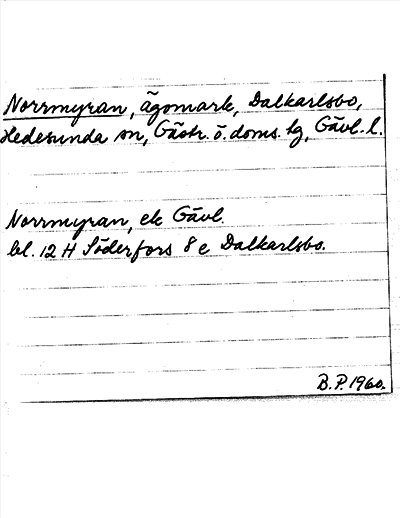 Norrmyran, ägomark, Dalkarlsbo,
Hedesunda sn, Gästr. ö. doms. lg, Gävl. l.
Norrmyran, ek Gävl.
bl. 12 H Söderfors 8 e Dalkarlsbo.
B.P. 1960.